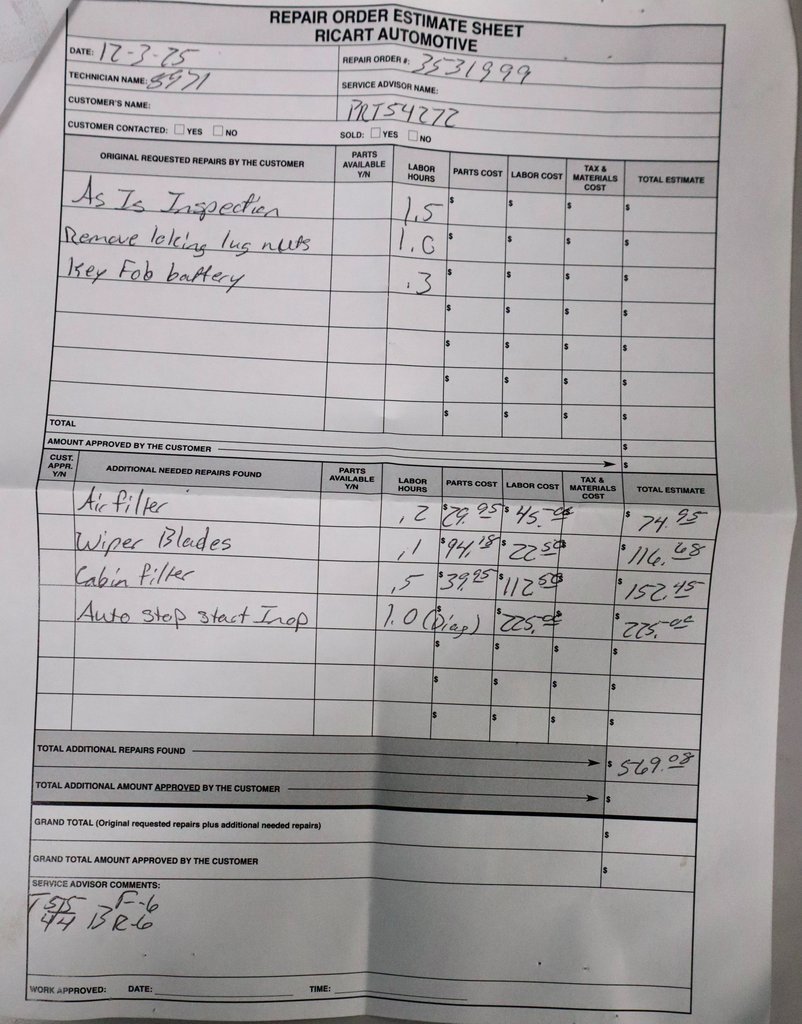 REPAIR ORDER ESTIMATE SHEET
RICART AUTOMOTIVE
DATE: 12-3-25 REPAIR ORDER #: 3531999
TECHNICIAN NAME: 8971 SERVICE ADVISOR NAME:
CUSTOMER'S NAME: PRT54272
CUSTOMER CONTACTED: ☐ YES ☐ NO SOLD: ☐ YES ☐ NO
ORIGINAL REQUESTED REPAIRS BY THE CUSTOMER PARTS AVAILABLE Y/N LABOR HOURS PARTS COST LABOR COST TAX & MATERIALS COST TOTAL ESTIMATE
As Is Inspection 1.5 $ $ $ $
Remove loking lug nuts 1.0 $ $ $ $
Key Fob battery .3 $ $ $ $
$ $ $ $
$ $ $ $
$ $ $ $
$ $ $ $
TOTAL $
AMOUNT APPROVED BY THE CUSTOMER $
CUST. APPR. Y/N ADDITIONAL NEEDED REPAIRS FOUND PARTS AVAILABLE Y/N LABOR HOURS PARTS COST LABOR COST TAX & MATERIALS COST TOTAL ESTIMATE
Air filter .2 $29.95 $45.00 $ $74.95
Wiper Blades .1 $94.18 $22.50 $ $116.68
Cabin filter .5 $39.95 $112.50 $ $152.45
Auto stop start Inop 1.0 (Diag) $ $225.00 $ $225.00
$ $ $ $
$ $ $ $
$ $ $ $
TOTAL ADDITIONAL REPAIRS FOUND $569.08
TOTAL ADDITIONAL AMOUNT APPROVED BY THE CUSTOMER $
GRAND TOTAL (Original requested repairs plus additional needed repairs) $
GRAND TOTAL AMOUNT APPROVED BY THE CUSTOMER $
SERVICE ADVISOR COMMENTS:
T 5/5 B F-6
4/4 R-6
WORK APPROVED: DATE: TIME: